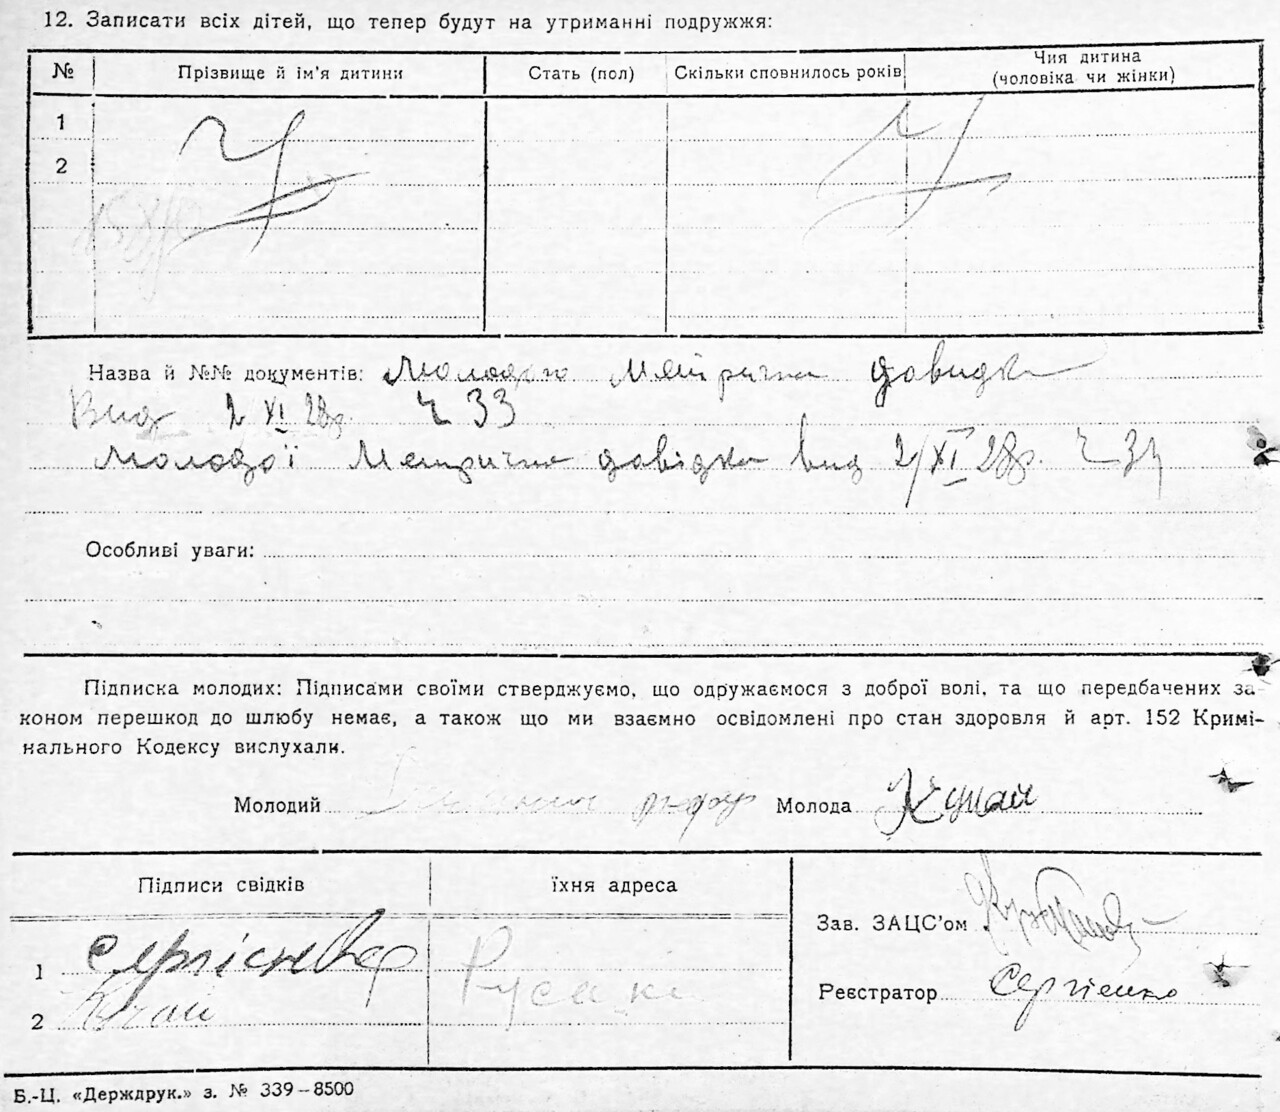 12. Записати всіх дітей, що тепер будут на утриманні подружжя:
№ Прізвище й ім'я дитини Стать (пол) Скільки сповнилось років Чия дитина (чоловіка чи жінки)
1
2
Назва й №№ документів: Молодого Метрична довидка
Вид 2 XI 28р. Ч 33
Молодої Метрична довідка вид 2/XI 28р. Ч 34
Особливі уваги:
Підписка молодих: Підписами своїми стверджуємо, що одружаємося з доброї волі, та що передбачених за-
коном перешкод до шлюбу немає, а також що ми взаємно освідомлені про стан здоровля й арт. 152 Кримі-
нального Кодексу вислухали.
Молодий Молода Кучай
Підписи свідків їхня адреса
Зав. ЗАЦС'ом
1 Русаки
Реєстратор Сергіенко
2 Кучай
Б.-Ц. «Держдрук.» з. № 339–8500